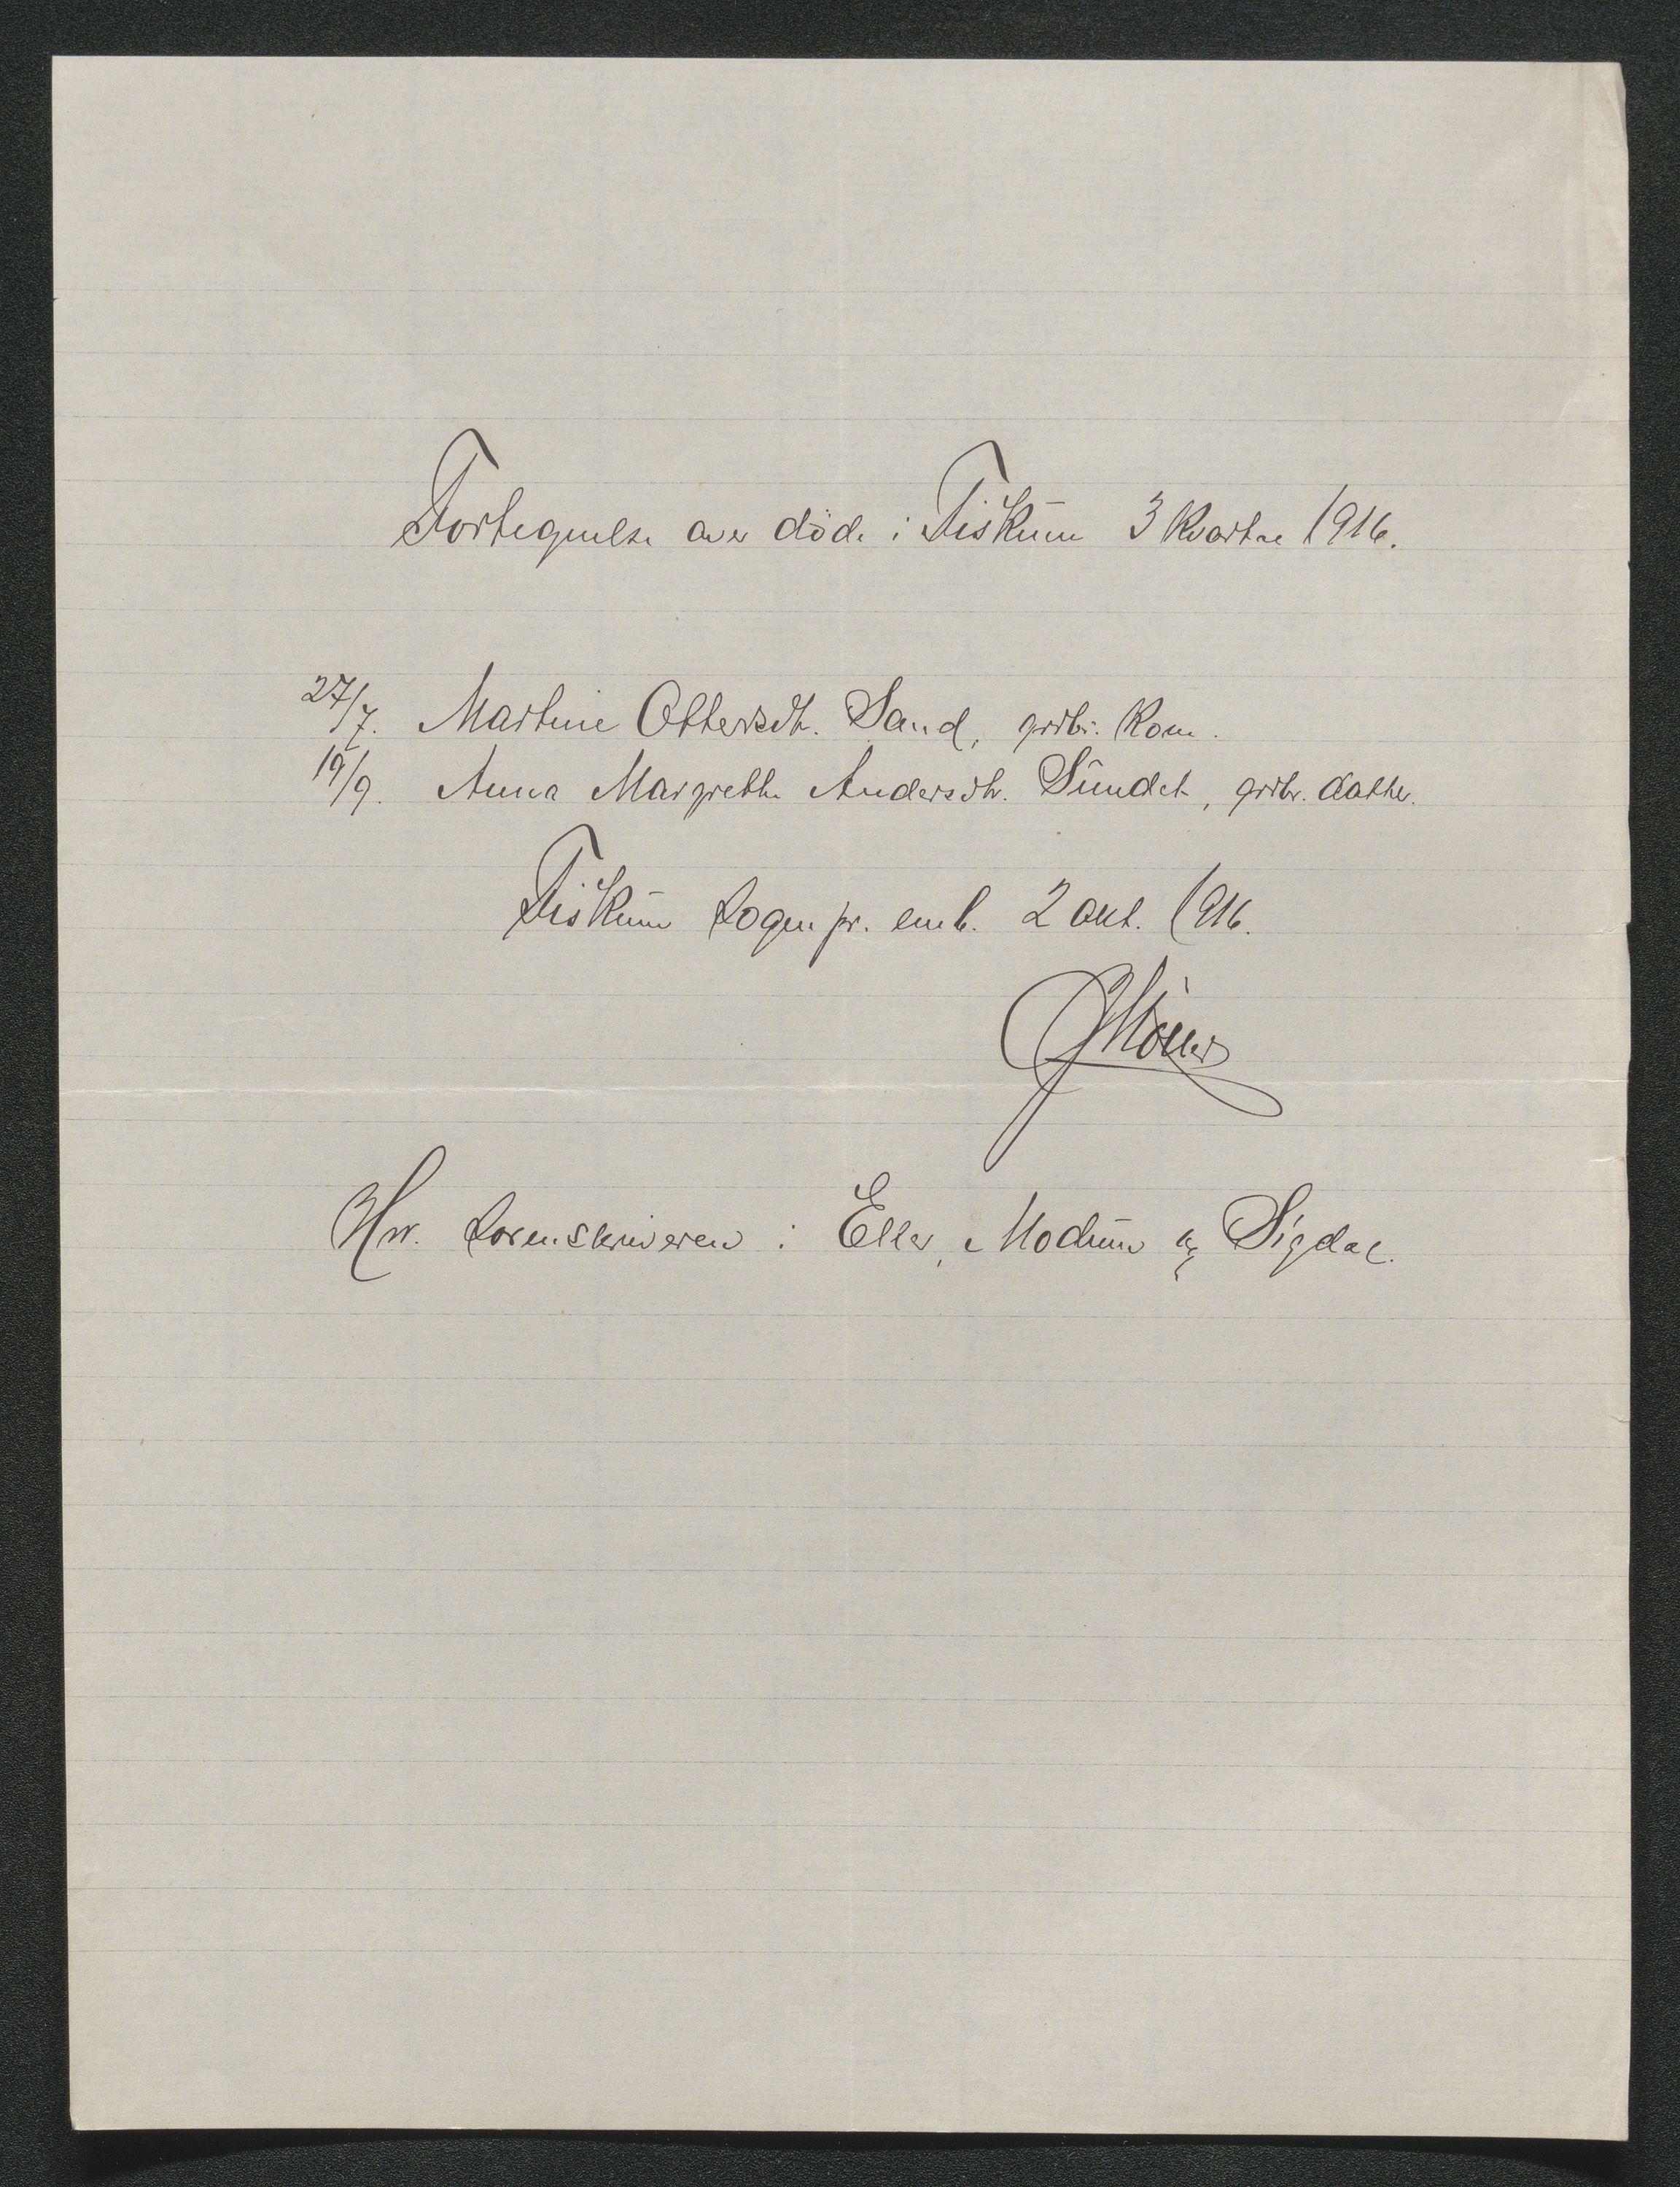 Fortegnelse over døde i Fiskum 3 Kvartal 1916.
27/7. Martine Ottersdtr. Sand, grdbr. Kone.
19/9. Anna Margrethe Andersdtr. Sundet, grdbr. datter.
Fiskum Sogn pr. emb. 2 okt. 1916.
Hr. Sorenskriveren i Eker, Modum og Sigdal.